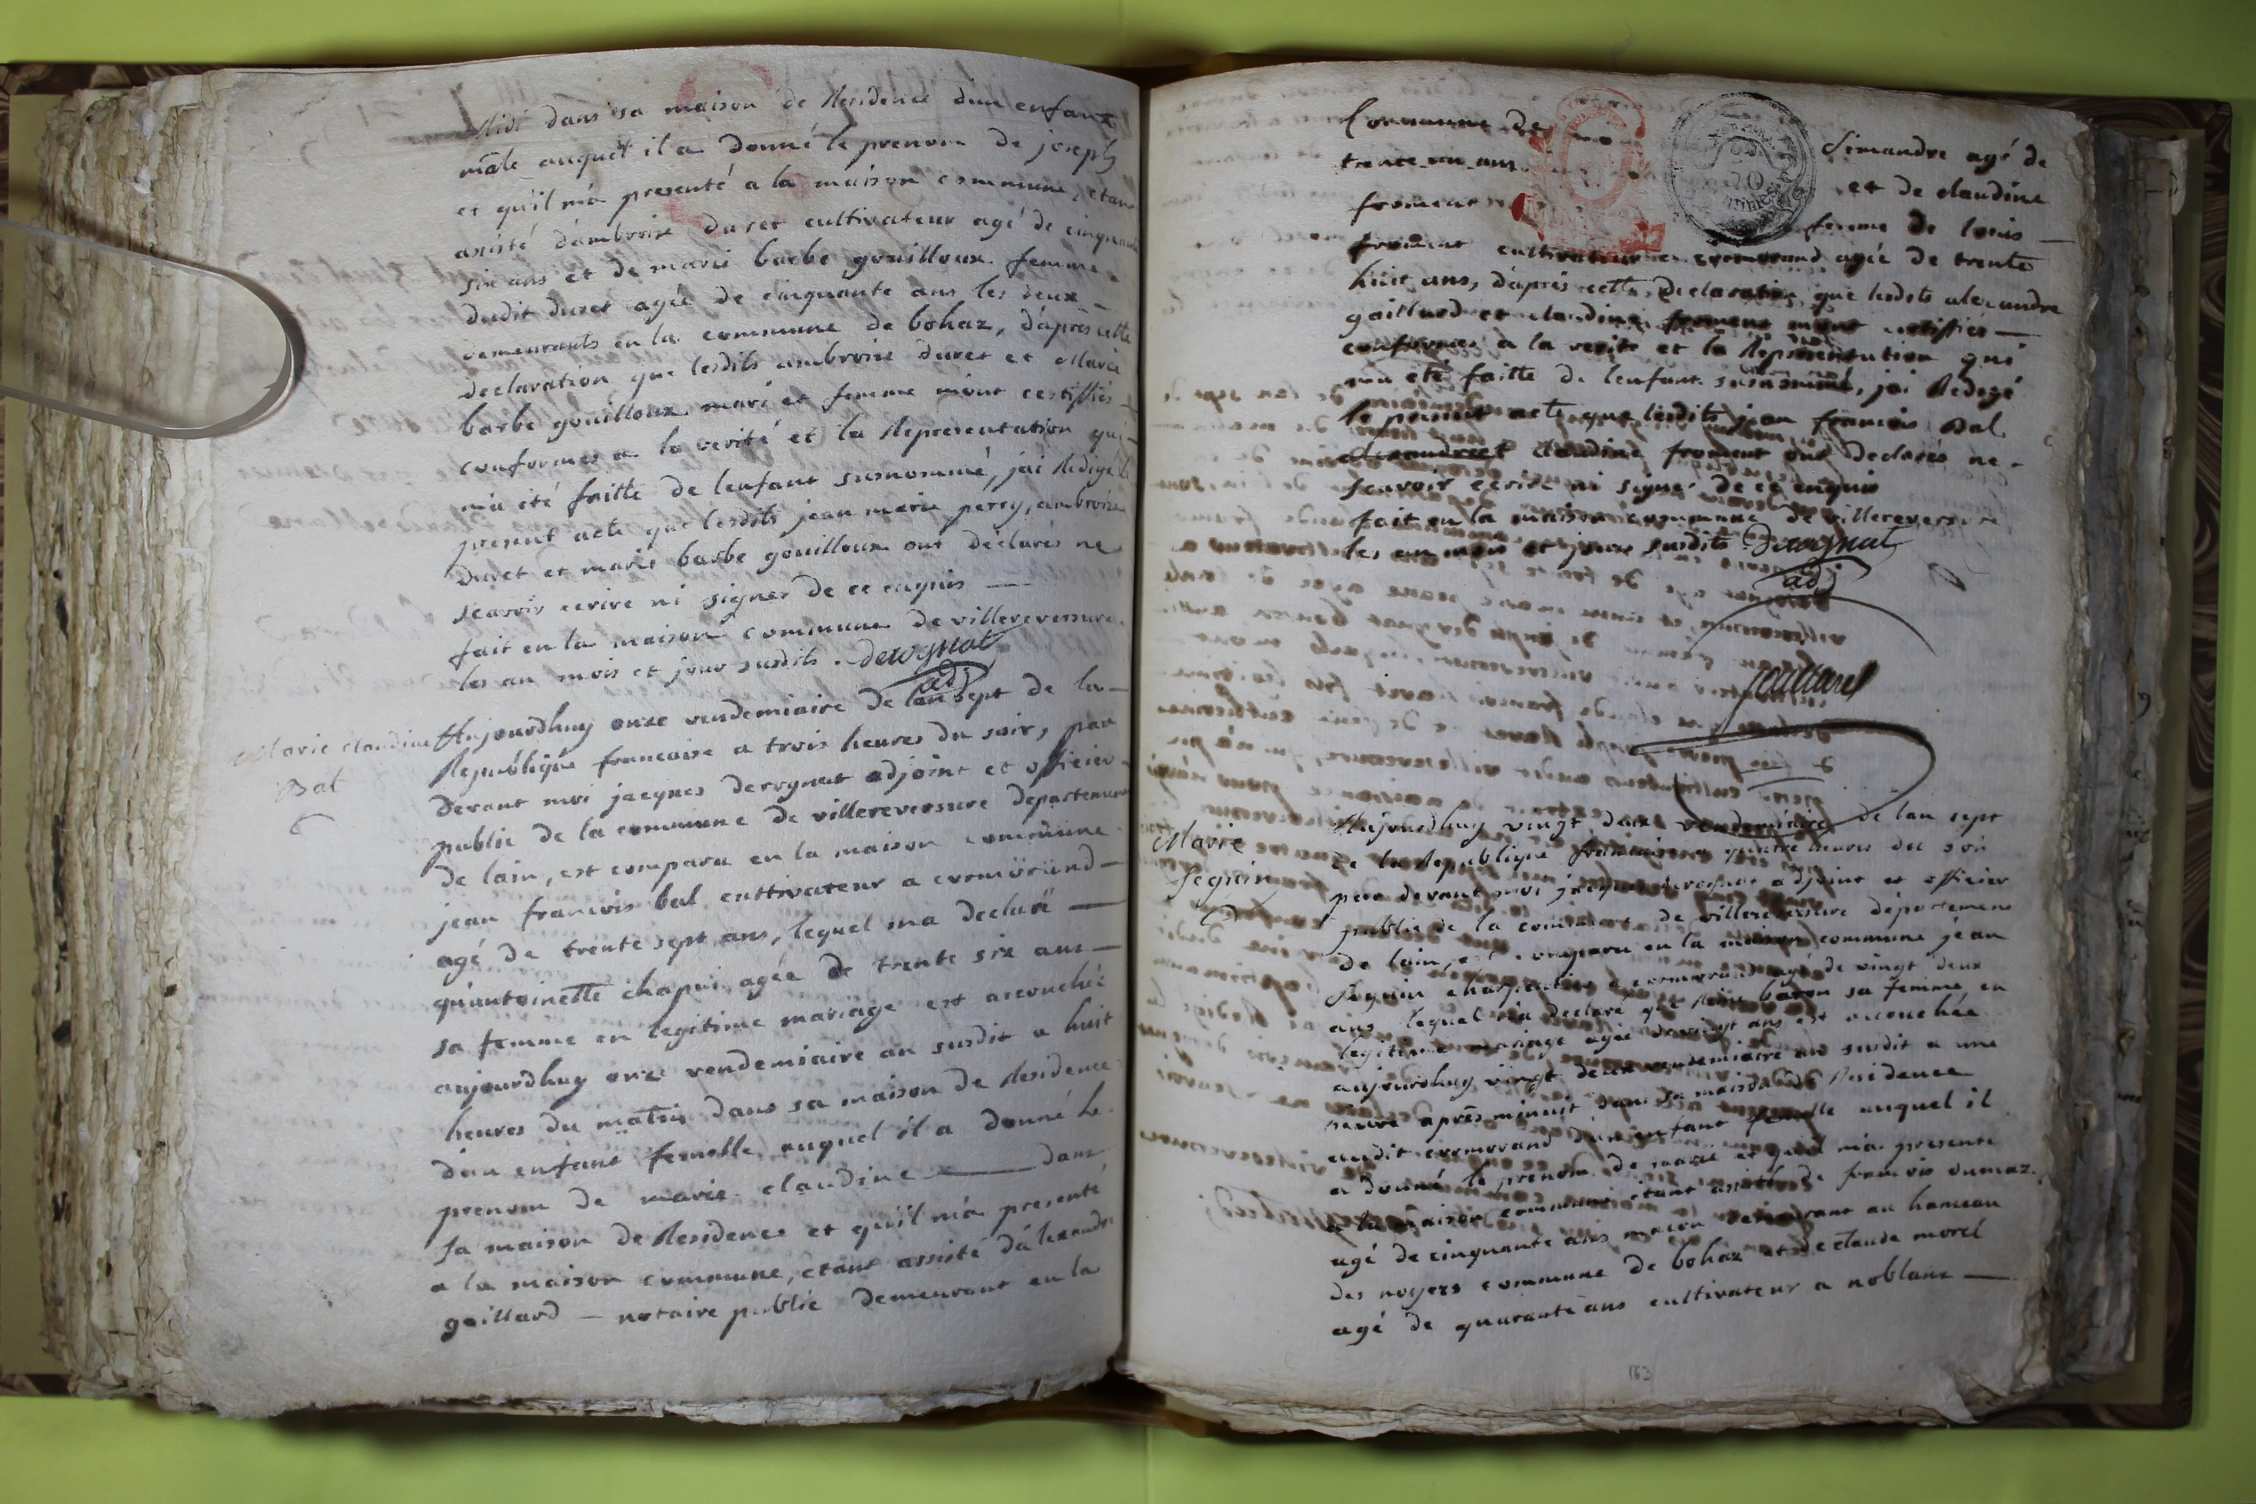 Midi dans sa maison de Residence dun enfant
mâle auquel il a donné le prenom de joseph
et qu'il má presenté a la maison commune, etant
assisté d'ambroise duret cultivateur agé de cinquante
six ans et de marie barbe gouilloux femme
dudit duret agée de cinquante ans les deux
demeurants en la commune de bohaz, d'après cette
declaration que lesdits ambroise duret et Marie
barbe gouilloux mari et femme mont certiffiés
conformes a la verité et la Representation qui
mà été faitte de lenfant susnommé, jai Redigé le
present acte que lesdits jean marie perey, ambroise
duret et marie barbe gouilloux ont déclarés ne
scavoir ecrire ni signer de ce enquis
fait en la maison commune de villereversure
les an mois et jour susdits . derognat
adj
Marie claudine
Bal
Aujourdhuy onze vendemiaire de lan sept de la
Republique francaise a trois heures du soir, par
devant moi jacques derognat adjoint et officier
public de la commune de villereversure departement
de lain, est comparu en la maison commune
jean francois bal cultivateur a cormorand
agé de trente sept ans, lequel ma declaré
qu'antoinette chapui agée de trente six ans
sa femme en legitime mariage est accouchée
aujourdhuy onze vendemiaire an susdit a huit
heures du matin dans sa maison de Residence
dun enfant femelle auquel il a donné le
prenom de marie claudine dans
sa maison de Residence et qu'il má presenté
a la maison commune, etant assisté d'alexandre
gaillard notaire public demeurant en la
Commune de Simandre agé de
trente un ans et de claudine
froment femme de louis
froment cultivateur a cormorand agée de trente
huit ans, d'après cette declaration que lesdits alexandre
gaillard et claudine froment mont certiffiés
conformes à la verité et la Representation qui
ma été faitte de lenfant susnommé, jai Redigé
le present acte que lesdits jean francois Bal
et claudine froment ont declarés ne
scavoir ecrire ni signer de ce enquis
fait en la maison commune de villereversure
les an mois et jour susdits Derognat
adj
gaillard
Marie
seguin
Aujourdhuy vingt deux vendemiaire de lan sept
de la Republique francaise a quatre heures du soir
par devant moi jacques derognat adjoint et officier
public de la commune de villereversure departement
de lain, est comparu en la maison commune jean
Seguin charpentier a cormorand agé de vingt deux
ans lequel ma declaré que baron sa femme en
legitime mariage agée de vingt ans est accouchée
aujourdhuy vingt deux vendemiaire an susdit a une
heure après minuit dans sa maison de Residence
audit cormorand dun enfant femelle auquel il
a donné le prenom de marie et quil má presenté
a la maison commune, etant assisté de francois dumaz
agé de cinquante ans macon demeurant au hameau
des noyers commune de bohaz et de claude morel
agé de quarante ans cultivateur a noblans
163